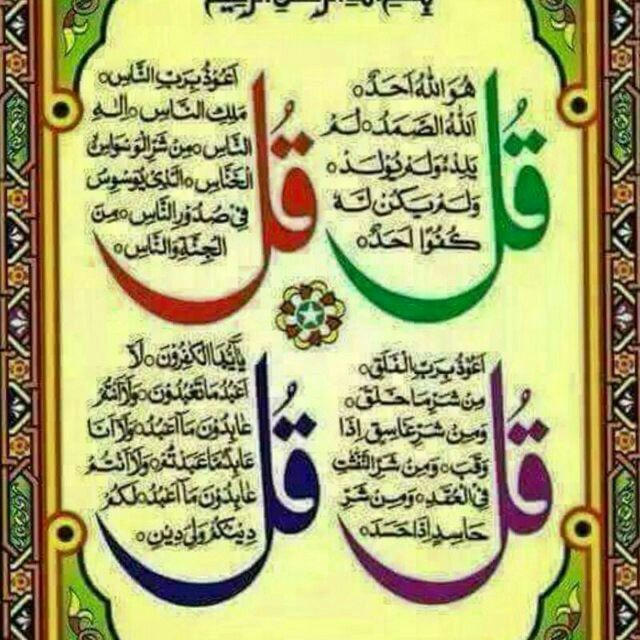 بِسْمِ اللهِ الرَّحْمٰنِ الرَّحِيْمِ
قُلْ
هُوَ اللهُ اَحَدٌ ○
اَللهُ الصَّمَدُ ○ لَمْ
يَلِدْ ○ وَلَمْ يُوْلَدْ ○
وَلَمْ يَكُنْ لَّهٗ
كُفُوًا اَحَدٌ ○
قُلْ
اَعُوْذُ بِرَبِّ النَّاسِ ○
مَلِكِ النَّاسِ ○ اِلٰهِ
النَّاسِ ○ مِنْ شَرِّ الْوَسْوَاسِ
الْخَنَّاسِ ○ الَّذِيْ يُوَسْوِسُ
فِيْ صُدُوْرِ النَّاسِ ○ مِنَ
الْجِنَّةِ وَالنَّاسِ ○
قُلْ
اَعُوْذُ بِرَبِّ الْفَلَقِ ○
مِنْ شَرِّ مَا خَلَقَ ○
وَمِنْ شَرِّ غَاسِقٍ اِذَا
وَقَبَ ○ وَمِنْ شَرِّ النَّفّٰثٰتِ
فِي الْعُقَدِ ○ وَمِنْ شَرِّ
حَاسِدٍ اِذَا حَسَدَ ○
قُلْ
يٰاَيُّهَا الْكٰفِرُوْنَ ○ لَا
اَعْبُدُ مَا تَعْبُدُوْنَ ○ وَلَا اَنْتُمْ
عَابِدُوْنَ مَا اَعْبُدُ ○ وَلَا اَنَا
عَابِدٌ مَّا عَبَدْتُّمْ ○ وَلَا اَنْتُمْ
عَابِدُوْنَ مَا اَعْبُدُ ○ لَكُمْ
دِيْنُكُمْ وَلِيَ دِيْنِ ○